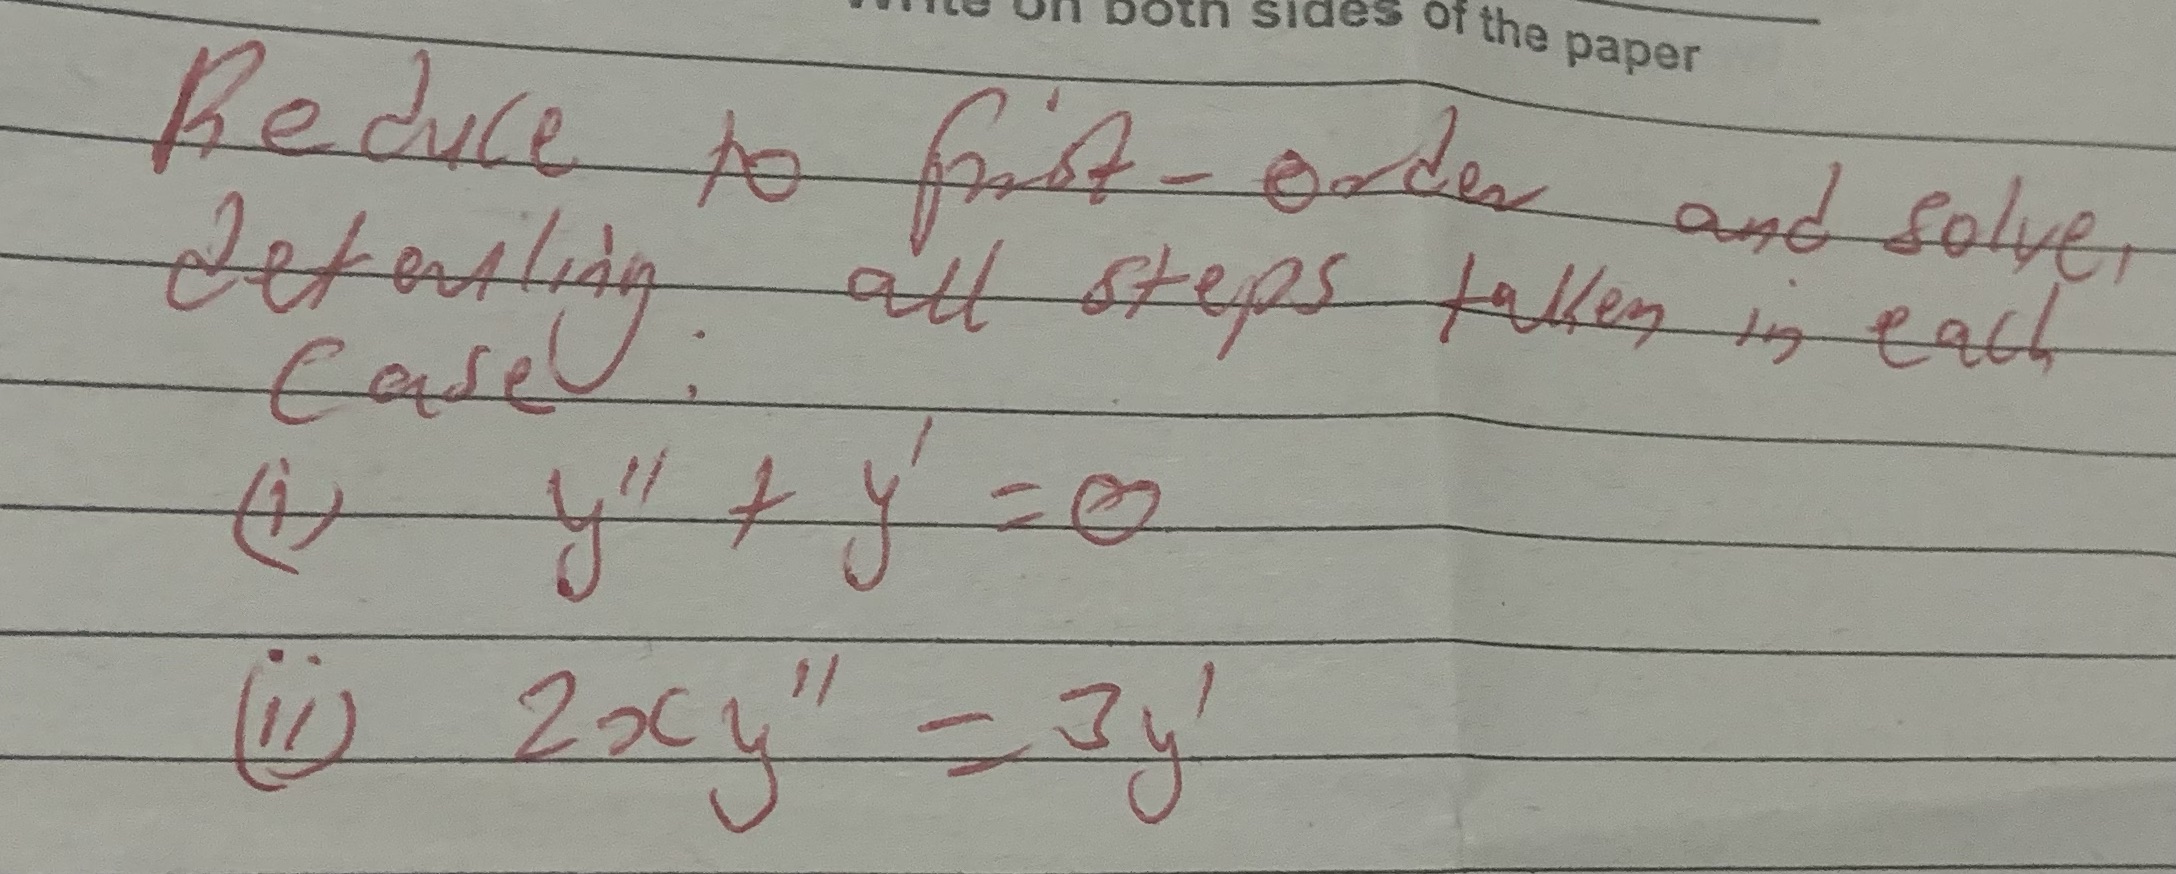 Write on both sides of the paper
Reduce to first-order and solve,
detailing all steps taken in each
case:
(i) y'' + y' = 0
(ii) 2xy'' = 3y'